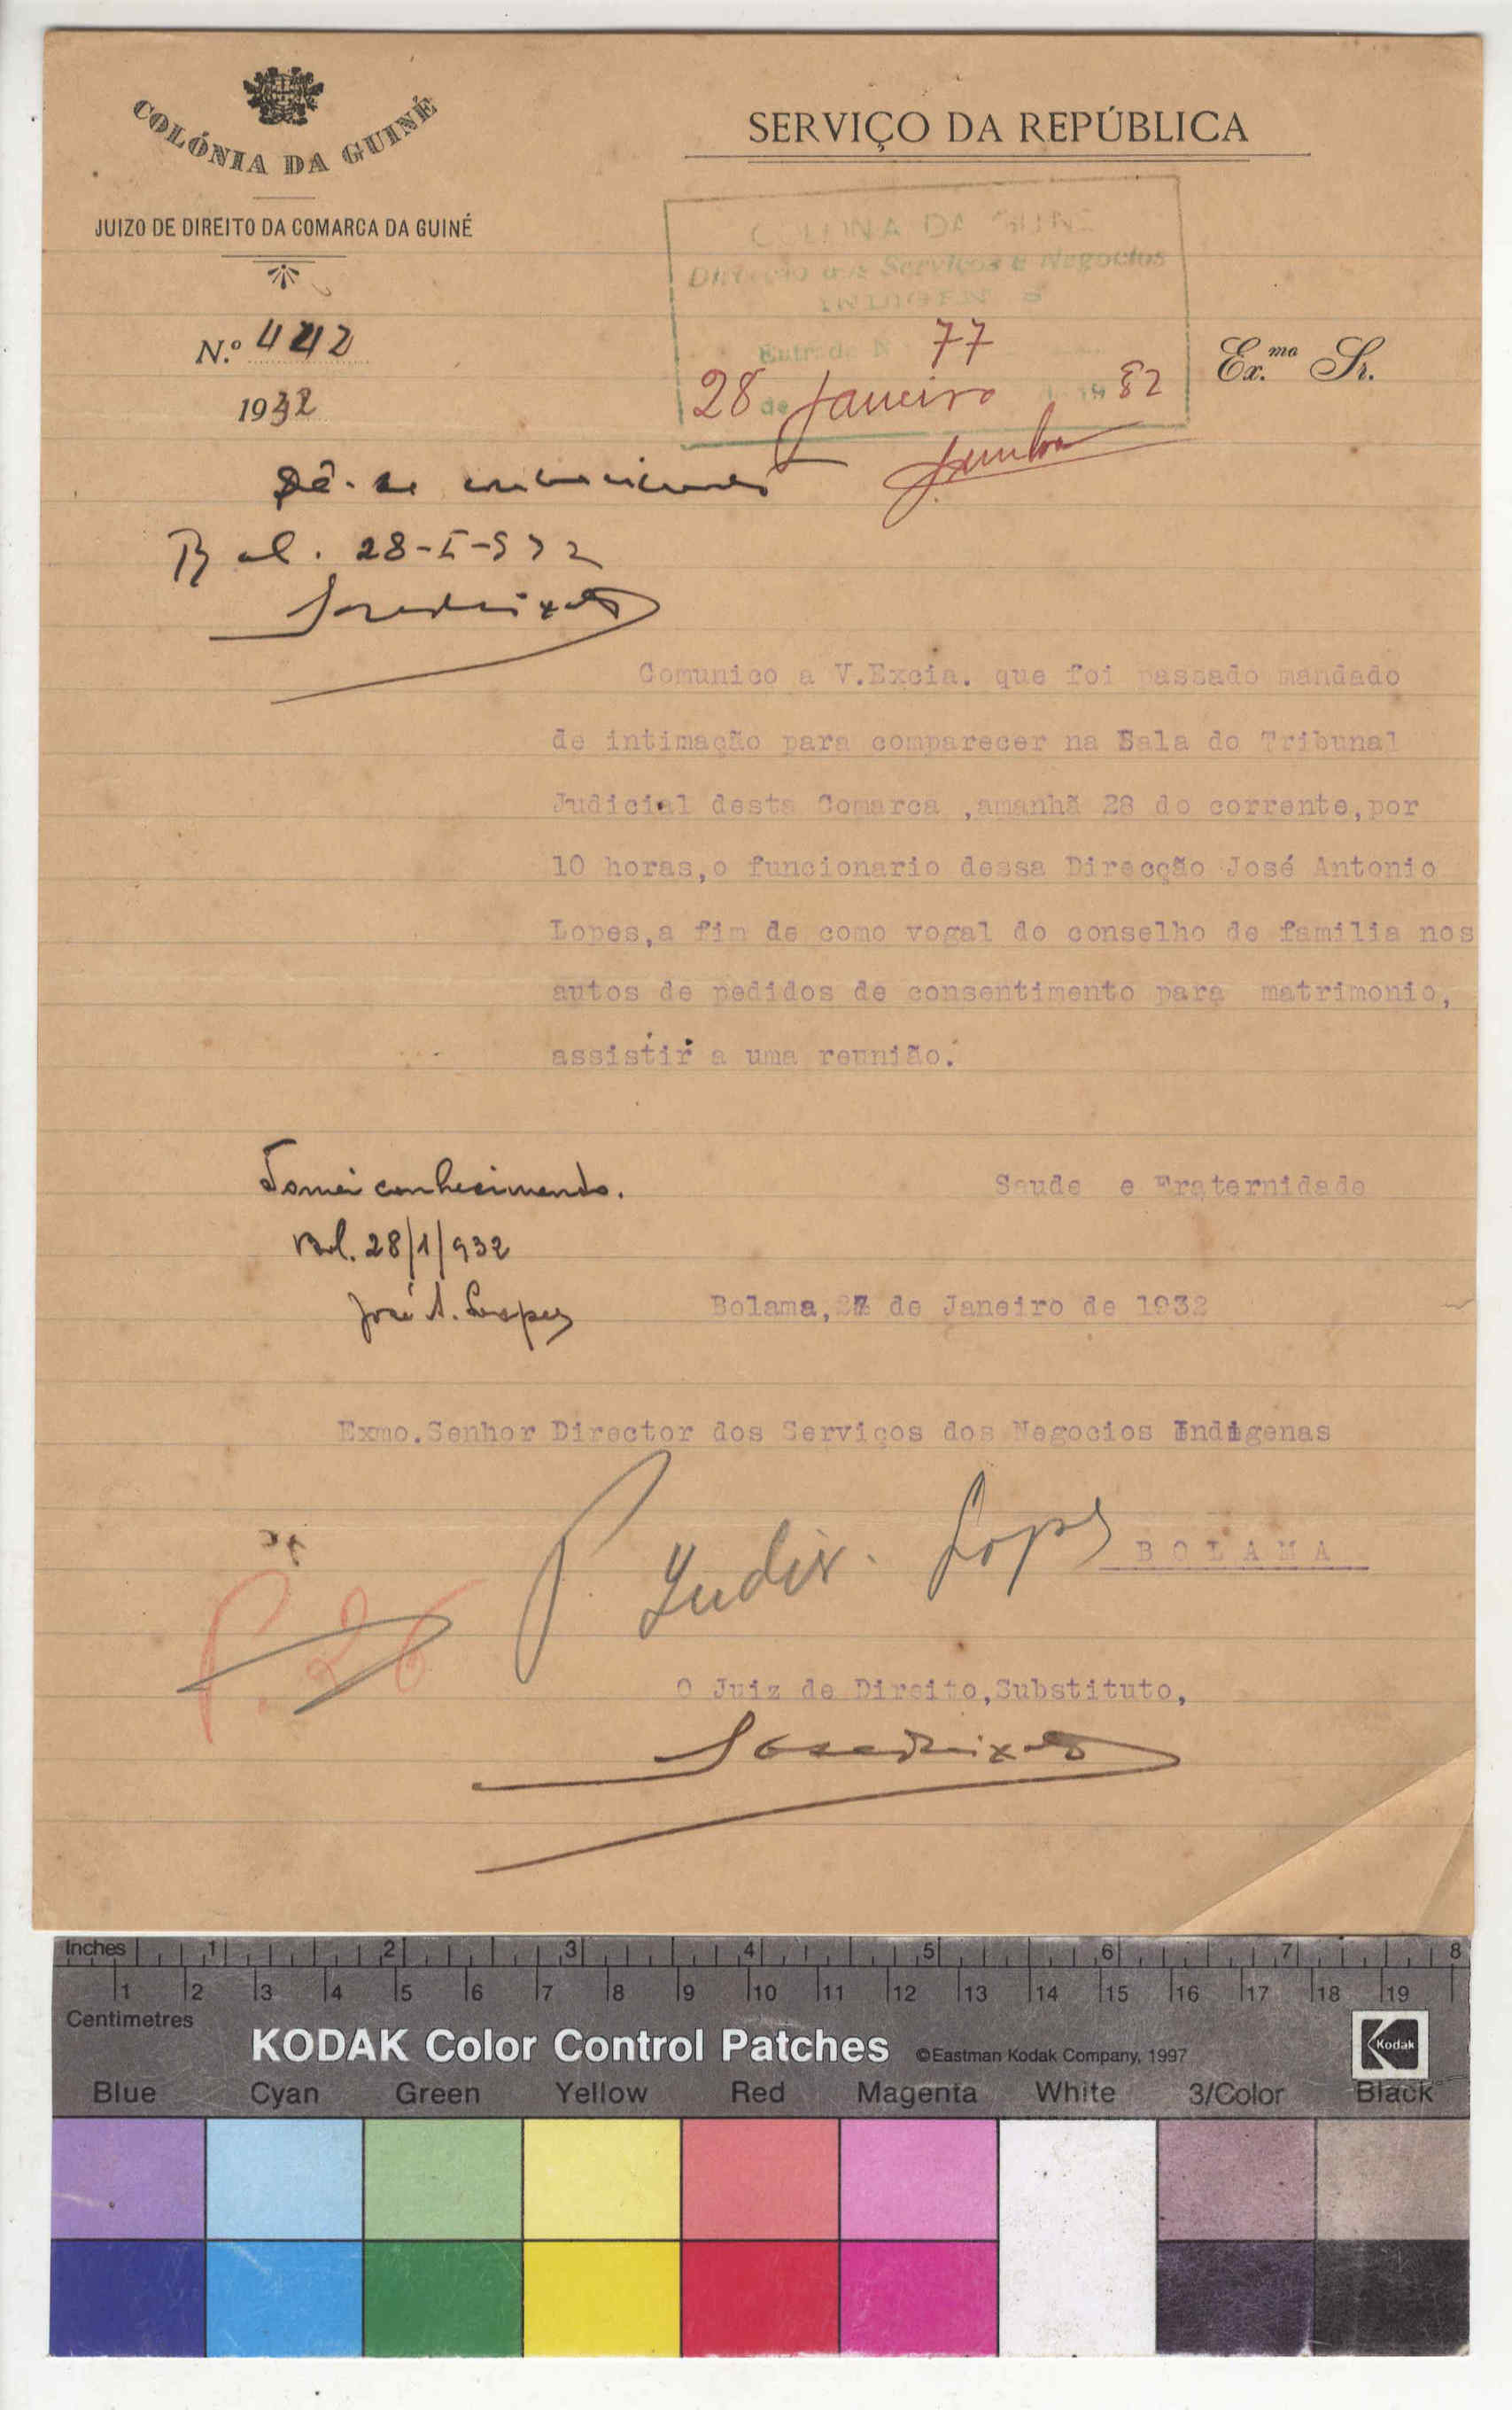 COLÓNIA DA GUINÉ
JUIZO DE DIREITO DA COMARCA DA GUINÉ
SERVIÇO DA REPÚBLICA
COLONIA DA GUINÉ
Direcção dos Serviços e Negocios
INDIGENAS
Entrada N 77
28 de Janeiro de 19 32
N.º 442
1932
Ex.mo Sr.
Dê-se conhecimento
Bol. 28-I-932
Comunico a V.Excia. que foi passado mandado
de intimação para comparecer na Sala do Tribunal
Judicial desta Comarca ,amanhã 28 do corrente,por
10 horas,o funcionario dessa Direcção José Antonio
Lopes,a fim de como vogal do conselho de familia nos
autos de pedidos de consentimento para matrimonio,
assistir a uma reunião.
Tomei conhecimento.
Bol. 28/1/932
José A. Lopes
Saude e Fraternidade
Bolama,27 de Janeiro de 1932
Exmo.Senhor Director dos Serviços dos Negocios Indigenas
P. Lopes
BOLAMA
P. 26
O Juiz de Direito,Substituto,
Inches 1 2 3 4 5 6 7 8
1 2 3 4 5 6 7 8 9 10 11 12 13 14 15 16 17 18 19
Centimetres
KODAK Color Control Patches ©Eastman Kodak Company, 1997 Kodak
Blue Cyan Green Yellow Red Magenta White 3/Color Black